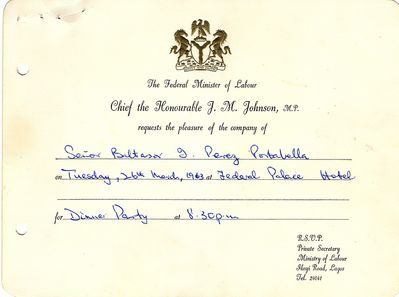 The Federal Minister of Labour
Chief the Honourable J. M. Johnson, M.P.
requests the pleasure of the company of
Señor Baltasar I. Perez Portabella
on Tuesday, 26th March, 1963 at Federal Palace Hotel
for Dinner Party at 8.30p.m
R.S.V.P.
Private Secretary
Ministry of Labour
Ikoyi Road, Lagos
Tel. 24041